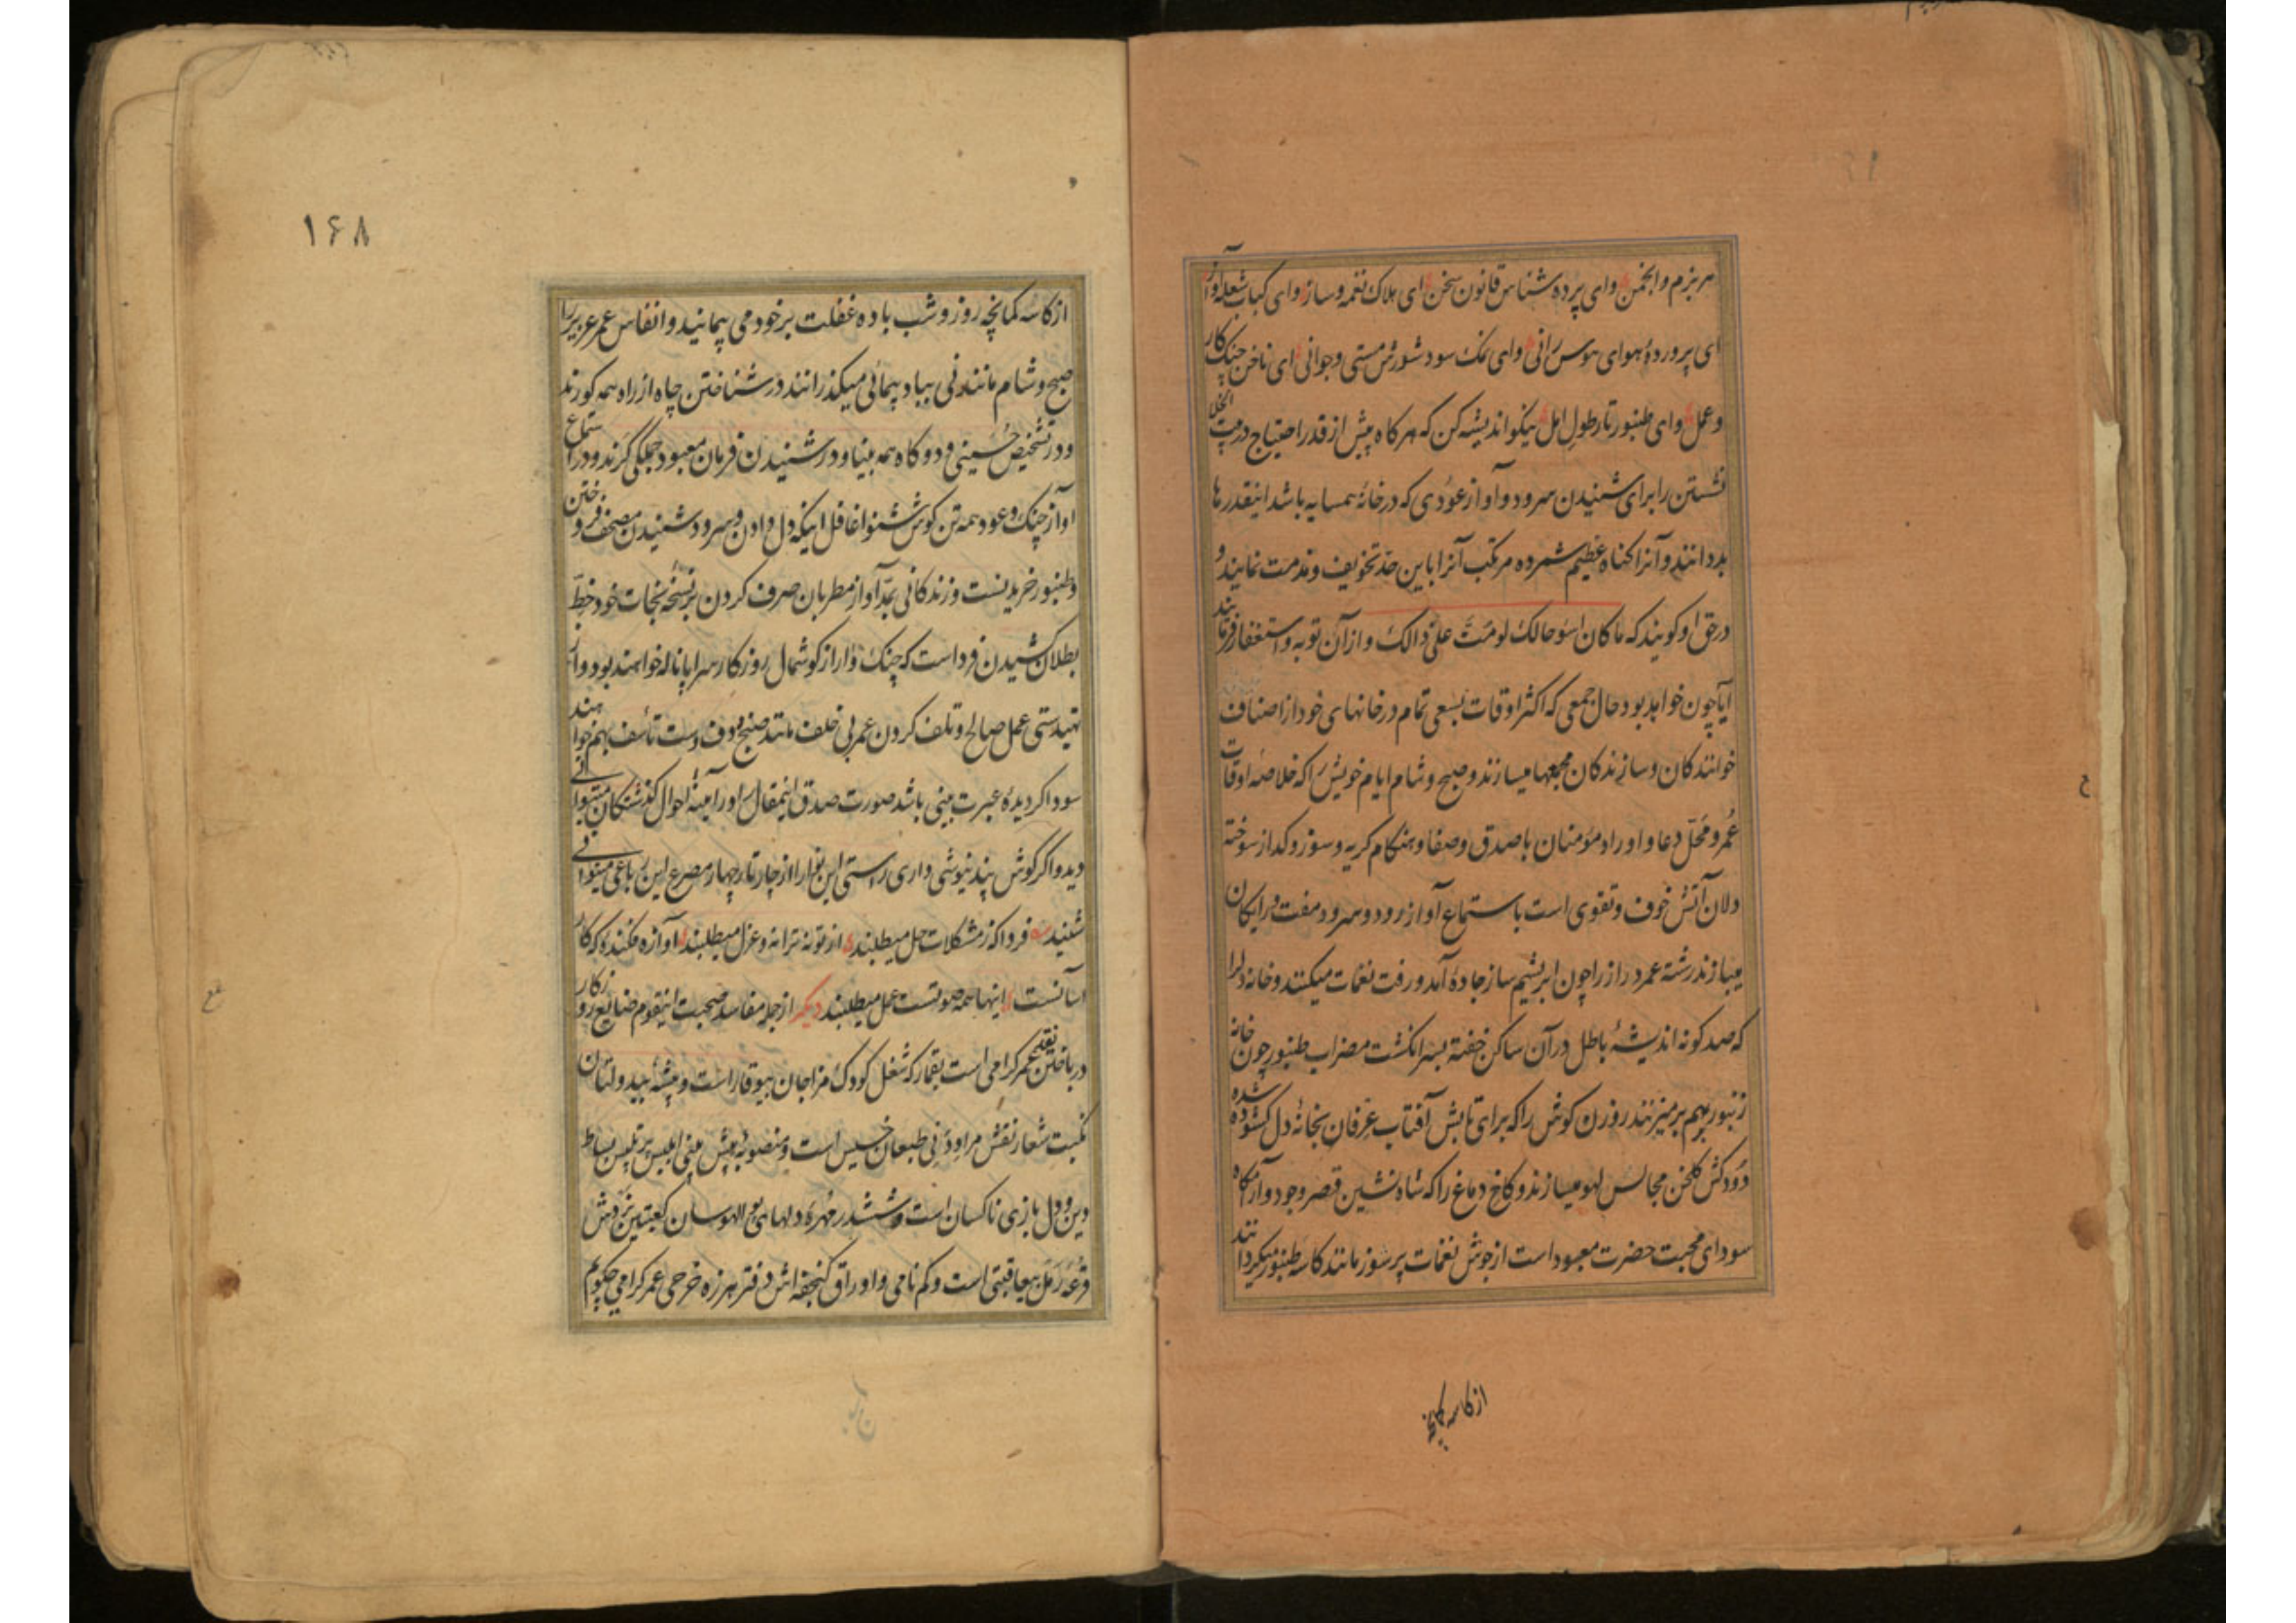 هر بزم و انجمن وای پرده شناس قانون سخن ای هلاک نغمه و ساز وای کباب شعله آواز
ای پرورده هوای هوس رانی وای نمک سود شورش مستی و جوانی ای ناخن چنک کار
و عمل وای طنبور تار طول امل نیکو اندیشه کن که هر کاه بیش از قدر احتیاج در بیت الخلا
نشستن را برای شنیدن سرود و آواز عودی که در خانه همسایه باشد اینقدرها
بد دانند و آنرا کناه عظیم شمرده مرتکب آنرا باین حد تخویف و مذمت نمایند و
در حق او کویند که ما کان اسوء حالک لو مت علی ذالک و از آن توبه و استغفار فرمایند
آیا چون خواهد بود حال جمعی که اکثر اوقات بسعی تمام در خانهای خود از اصناف
خوانندکان و سازندکان مجمعها میسازند و صبح و شام ایام خویش را که خلاصه اوقات
عمر و محل دعا و اوراد مؤمنان با صدق و صفا و هنکام کریه و سوز و کداز سوخته
دلان آتش خوف و تقوی است باستماع آواز رود و سرود مفت و رایکان
میبازند رشته عمر دراز را چون ابریشم ساز جاده آمد و رفت نغمات میکنند و خانه دلرا
که صد کونه اندیشه باطل در آن ساکن خفته بسر انکشت مضراب طنبور چون خانه
زنبور بهم بر میزنند روزن کوش را که برای تابش آفتاب عرفان بخانه دل کشوده شده
دودکش کلخن مجالس لهو میسازند و کاخ دماغ را که شاه نشین قصر وجود و آرامکاه
سودای محبت حضرت معبود است از جوش نغمات پرشور مانند کاسه طنبور میکردانند
از کاسه کمانچه
۱۶۸
از کاسه کمانچه روز و شب باده غفلت بر خود می پیمانید و انفاس عمر عزیز را
صبح و شام مانند نی بباد پیمائی میکذرانند در شناختن چاه از راه همه کورند
و در تشخیص حسینی و دوکاه همه بینا و در شنیدن فرمان معبود جملکی کرند و در استماع
آواز چنک و عود همه تن کوش شنوا غافل اینکه دل دادن و سرود شنیدن مصحف فروختن
و طنبور خریدنست و زندکانی بمد آواز مطربان صرف کردن بر نسخه نجات خود خط
بطلان کشیدن فرداست که چنک وار از کوشمال روزکار سراپا ناله خواهند بود و از
تهیدستی عمل صالح و تلف کردن عمر بی خلف مانند صنج و دف دست تأسف بهم خواهند
سود اکر دیده عبرت بینی باشد صورت صدق اینمقال را در آینه احوال کذشتکان میتوانی
دید و اکر کوش پند نیوشی داری راستی این نوا را از چار تار چهار مصرع این رباعی میتوانی
شنید فردا که ز مشکلات حل میطلبند از تو نه ترانه و غزل میطلبند آوازه فکنده که کار
آسانست اینها همه صوتست عمل میطلبند دیکر از جمله مفاسد صحبت اینقوم ضایع روزکار
در باختن نقد عمر کرامی است بقمار که شغل کودک مزاجان بیوقار است و پیشه بیدولتان
نکبت شعار نقش مراد دنی طبعان خسیس است و منصوبه پیش بینی ابلیس پر تلبیس بساط
دین و دل بازی ناکسان است و ششدر مهره دلهای بو الهوسان کعبتین نردش
قرعه رمل بیعاقبتی است و کم نامی و اوراق کنجفه اش دفتر هرزه خرجی عمر کرامی چکویم